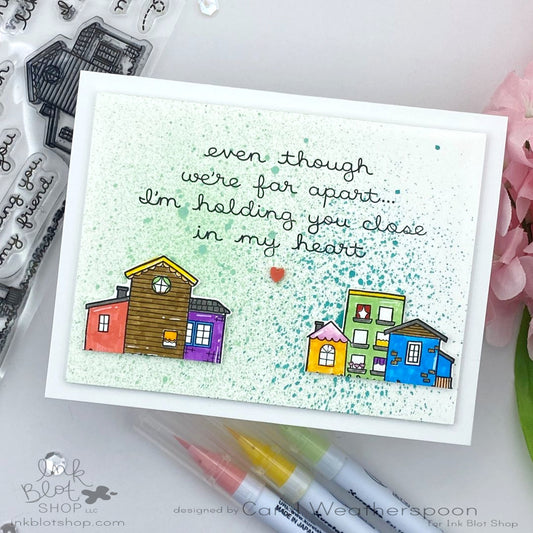 even though
we're far apart...
I'm holding you close
in my heart
my friend
Ink
Blot
SHOP LLC
inkblotshop.com
designed by Carol Weatherspoon
for Ink Blot Shop
MADE IN JAPAN